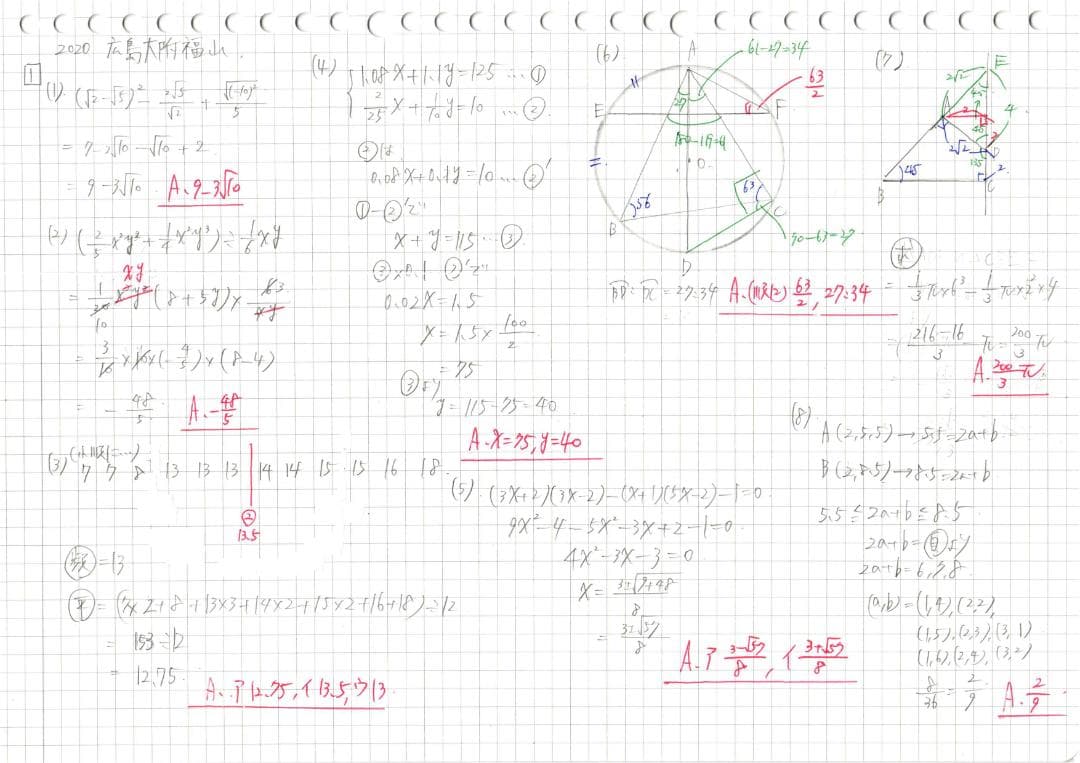 2020 広島大附福山
1
(1) (√2-√5)² - 2√5/√2 + √(1-10)²/5
= 7-2√10-√10+2
= 9-3√10
A. 9-3√10
(2) (2/5 x²y² + 1/4 x²y³) ÷ 1/6 xy
xy
(8+5y) ×
= 3/10 × 10 × (-4/5) × (8-4)
= -48/5
A. -48/5
(3)
7 7 8 13 13 13 14 14 15 15 16 18
② 13.5
= 13
㊥ = (7×2+8+13×3+14×2+15×2+16+18)÷12
= 153÷12
= 12.75
A. ア 12.75, イ 13.5, ウ 13
(4) 1.08x+1.1y=125 … ①
2/25 x + 1/10 y = 10 … ②
②は
0.08x+0.1y=10 … ②'
①-②'で
x+y=115 … ③
③×0.1 ②'で
0.02x=1.5
x=1.5×100/2
=75
③より
y=115-75=40
A. x=75, y=40
(5) (3x+2)(3x-2)-(x+1)(5x-2)-1=0
9x²-4-5x²-3x+2-1=0
4x²-3x-3=0
x = (3±√(9+48))/8
= (3±√57)/8
A. ア (3-√57)/8, イ (3+√57)/8
(6)
61-27=34
63/2
A
27
E
F
O
56
63
B
C
90-63=27
D
BD:DC = 27:34
A. (順に) 63/2, 27:34
(7)
E
2√2
45
4
A
2
D
2√2
135
2
B
45
C
= 1/3 π×6³ - 1/3 π×2²×4
= (216-16)/3 π = 200/3 π
A. 200/3 π
(8)
A(2, 5.5) → 5.5=2a+b
B(2, 8.5) → 8.5=2a+b
5.5≦2a+b≦8.5
2a+b=㊐より
2a+b=6,7,8
(a,b)=(1,4),(2,2),
(1,5),(2,3),(3,1)
(1,6),(2,4),(3,2)
8/36 = 2/9
A. 2/9